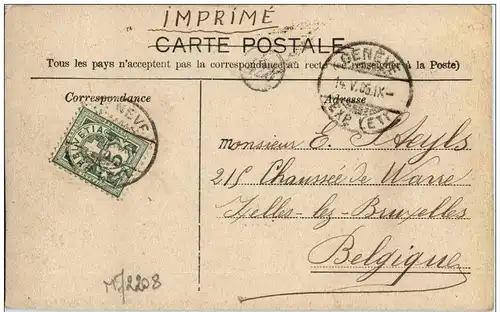 IMPRIMÉ
CARTE POSTALE
Tous les pays n'acceptent pas la correspondance au recto (se renseigner à la Poste)
GENÈVE
14.V.06.IX-
EXP. LETT.
Correspondance
Adresse
GENÈVE
HELVETIA
5
monsieur E. Heyls
215 Chaussée de Wavre
Ixelles-lez-Bruxelles
Belgique
2208